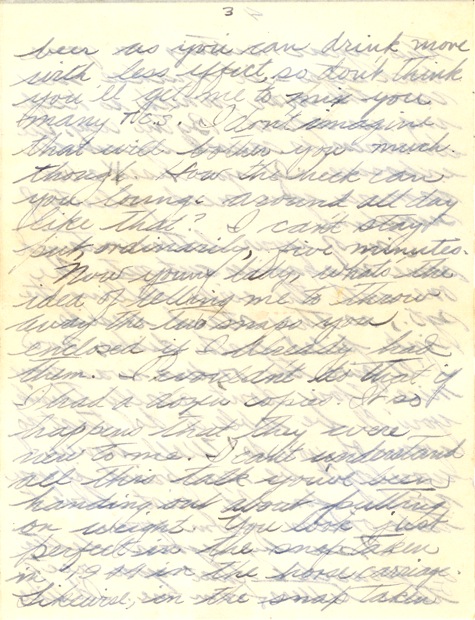 3
beer as you can drink more
with less effect, so don't think
you'll get me to mix you
many T.C.S. I don't imagine
that will bother you much
though. How the heck can
you lounge around all day
like that? I can't stay
put, ordinarily, five minutes.
Now young lady, whats the
idea of telling me to throw
away the two snaps you
enclosed if I already had
them. I wouldnt do that if
I had a dozen copies. It so
happens that they were
new to me. I can't understand
all this talk you've been
handing out about putting
on weight. You look just
perfect in the snap taken
in the horse carriage.
Likewise, in the snap taken